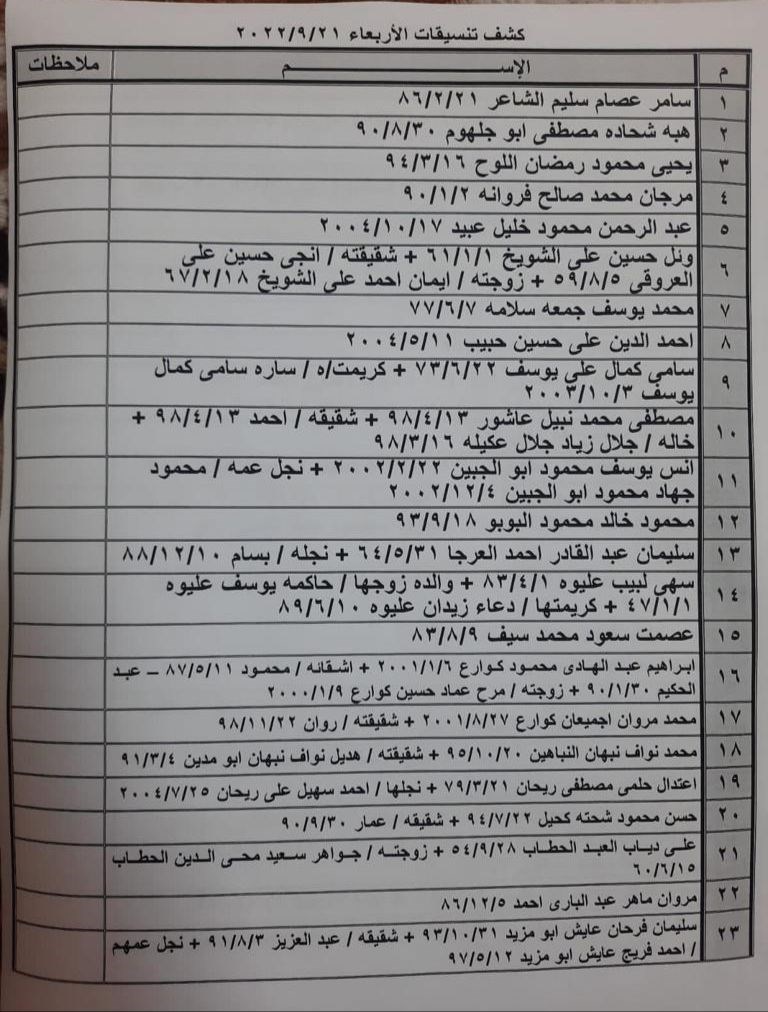 كشف تنسيقات الأربعاء ٢٠٢٢/٩/٢١
م الإســـــم ملاحظات
١ سامر عصام سليم الشاعر ٨٦/٢/٢١
٢ هبه شحاده مصطفى ابو جلهوم ٩٠/٨/٣٠
٣ يحيى محمود رمضان اللوح ٩٤/٣/١٦
٤ مرجان محمد صالح فروانه ٩٠/١/٢
٥ عبد الرحمن محمود خليل عبيد ٢٠٠٤/١٠/١٧
٦ ونل حسين على الشويخ ٦١/١/١ + شقيقته / انجى حسين على
العروقى ٥٩/٨/٥ + زوجته / ايمان احمد على الشويخ ٦٧/٢/١٨
٧ محمد يوسف جمعه سلامه ٧٧/٦/٧
٨ احمد الدين على حسين حبيب ٢٠٠٤/٥/١١
٩ سامى كمال على يوسف ٧٣/٦/٢٢ + كريمت/ه / ساره سامى كمال
يوسف ٢٠٠٣/١٠/٣
١٠ مصطفى محمد نبيل عاشور ٩٨/٤/١٣ + شقيقه / احمد ٩٨/٤/١٣ +
خاله / جلال زياد جلال عكيله ٩٨/٣/١٦
١١ انس يوسف محمود ابو الجبين ٢٠٠٢/٢/٢٢ + نجل عمه / محمود
جهاد محمود ابو الجبين ٢٠٠٢/١٢/٤
١٢ محمود خالد محمود البوبو ٩٣/٩/١٨
١٣ سليمان عبد القادر احمد العرجا ٦٤/٥/٣١ + نجله / بسام ٨٨/١٢/١٠
١٤ سهى لبيب عليوه ٨٣/٤/١ + والده زوجها / حاكمه يوسف عليوه
٤٧/١/١ + كريمتها / دعاء زيدان عليوه ٨٩/٦/١٠
١٥ عصمت سعود محمد سيف ٨٣/٨/٩
١٦ ابراهيم عبد الهادى محمود كوارع ٢٠٠١/١/٦ + اشقائه / محمود ٨٧/٥/١١ – عبد
الحكيم ٩٠/١/٣٠ + زوجته / مرح عماد حسين كوارع ٢٠٠٠/١/٩
١٧ محمد مروان اجميعان كوارع ٢٠٠١/٨/٢٧ + شقيقته / روان ٩٨/١١/٢٢
١٨ محمد نواف نبهان النباهين ٩٥/١٠/٢٠ + شقيقته / هديل نواف نبهان ابو مدين ٩١/٣/٤
١٩ اعتدال حلمى مصطفى ريحان ٧٩/٣/٢١ + نجلها / احمد سهيل على ريحان ٢٠٠٤/٧/٢٥
٢٠ حسن محمود شحته كحيل ٩٤/٧/٢٢ + شقيقه / عمار ٩٠/٩/٣٠
٢١ على دياب العبد الحطاب ٥٤/٩/٢٨ + زوجته / جواهر سعيد محى الدين الحطاب
٦٠/٦/١٥
٢٢ مروان ماهر عبد البارى احمد ٨٦/١٢/٥
٢٣ سليمان فرحان عايش ابو مزيد ٩٣/١٠/٣١ + شقيقه / عبد العزيز ٩١/٨/٣ + نجل عمهم
/ احمد فريج عايش ابو مزيد ٩٧/٥/١٢